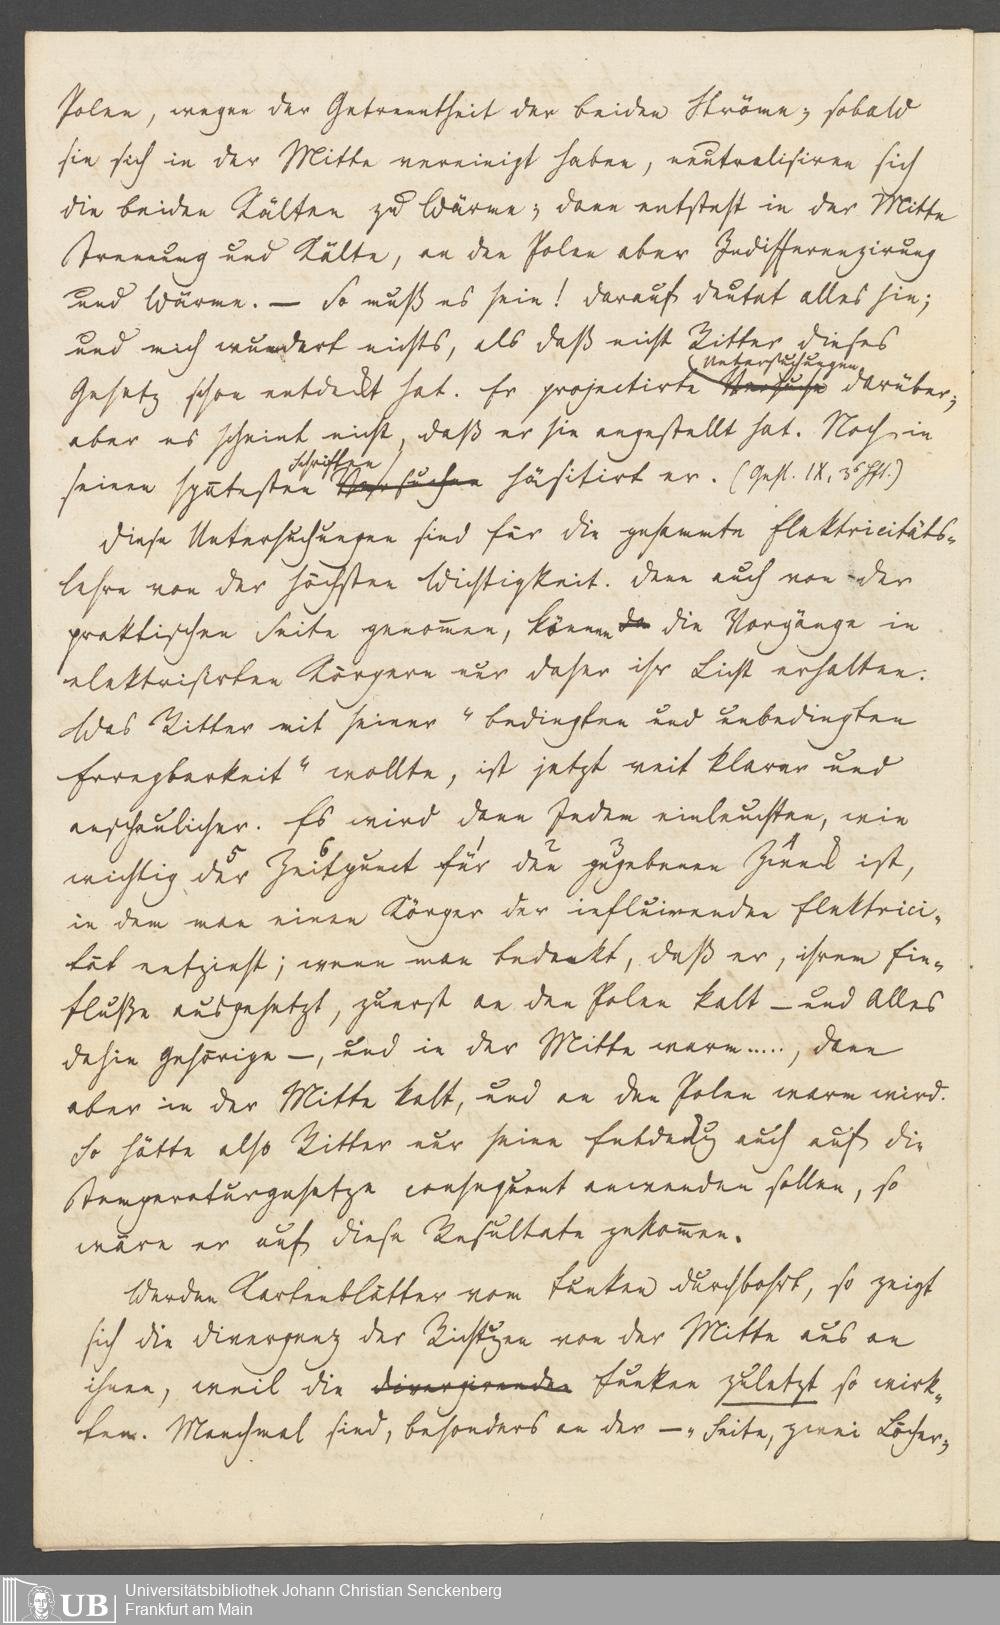 Polen, wegen der Getrenntheit der beiden Ströme; sobald
sie sich in der Mitte vereinigt haben, neutralisiren sich
die beiden Kälten zu Wärme; dann entsteht in der Mitte
Trennung und Kälte, an den Polen aber Indifferenzirung
und Wärme. — So muß es sein! darauf deutet alles hin;
und mich wundert nichts, als daß nicht Ritter dieses
Untersuchungen
Gesetz schon entdeckt hat. Er projectirte Versuche darüber;
aber es scheint nicht, daß er sie angestellt hat. Noch in
Schriften
seinen spätesten Versuchen häsitirt er. (Gehl. IX, 3s Hft.)
Diese Untersuchungen sind für die gesammte Elektricitäts-
lehre von der höchsten Wichtigkeit. Denn auch von der
praktischen Seite genom̅en, können da die Vorgänge in
elektrisirten Körpern nur daher ihr Licht erhalten.
Was Ritter mit seiner "bedingten und unbedingten
Erregbarkeit" wollte, ist jetzt weit klarer und
anschaulicher. Es wird dann Jedem einleuchten, wie
5 6 1 2 3 4
wichtig der Zeitpunct für den gegebenen Zweck ist,
in dem man einen Körper der influirenden Elektrici-
tät entzieht; wenn man bedenkt, daß er, ihrem Ein-
fluße ausgesetzt, zuerst an den Polen kalt — und Alles
dahin Gehörige —, und in der Mitte warm....., dann
aber in der Mitte kalt, und an den Polen warm wird.
So hätte also Ritter nur seine Entdeckg auch auf die
Temperaturgesetze consequent anwenden sollen, so
wäre er auf diese Resultate gekom̅en.
Werden Kartenblätter vom Funken durchbohrt, so zeigt
sich die Divergenz der Richtgen von der Mitte aus an
ihnen, weil die divergirenden Funken zuletzt so wirk-
ten. Manchmal sind, besonders an der — Seite, zwei Löcher;
UB
Universitätsbibliothek Johann Christian Senckenberg
Frankfurt am Main